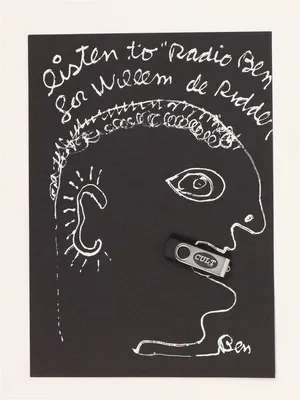 listen to "Radio Ben
for Willem de Ridder
CULT
Ben